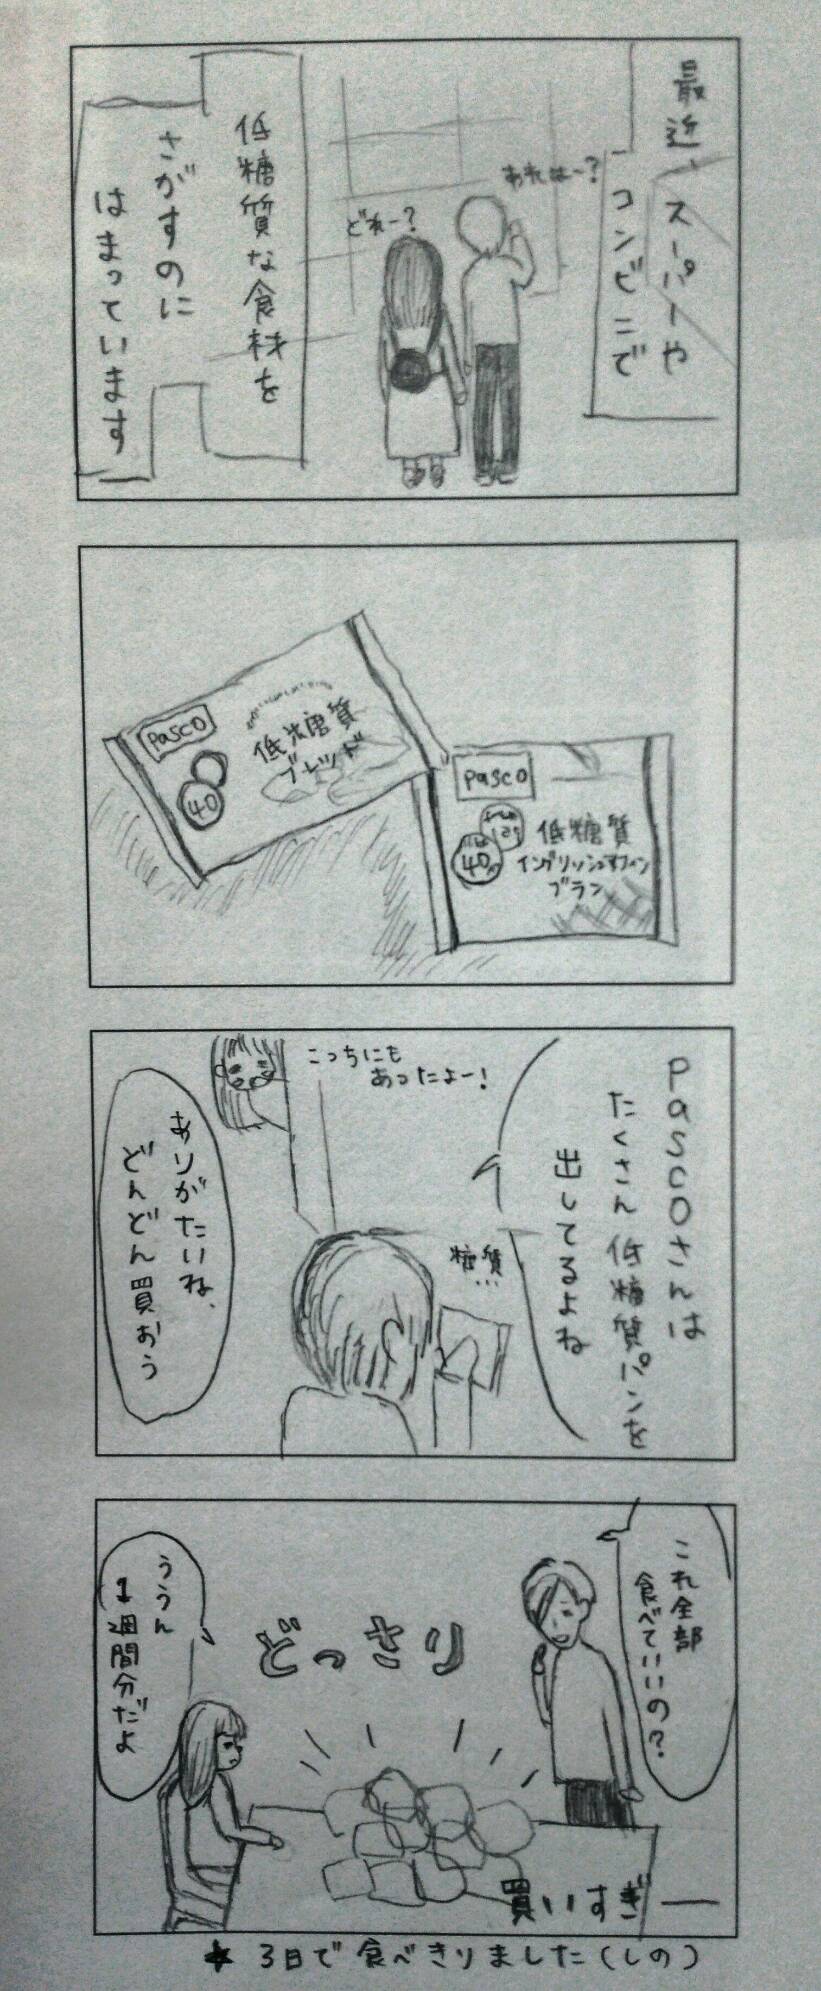 最近、スーパーや
コンビニで
あれはー?
どれー?
低糖質な食材を
さがすのに
はまっています
Pasco
低糖質
ブレッド
40
Pasco
低糖質
イングリッシュマフィン
ブラン
40
Pascoさんは
たくさん低糖質パンを
出してるよね
こっちにも
あったよー!
糖質…
ありがたいね、
どんどん買おう
これ全部
食べていいの?
どっさり
ううん
1週間分だよ
買いすぎ―
★ 3日で食べきりました(しの)